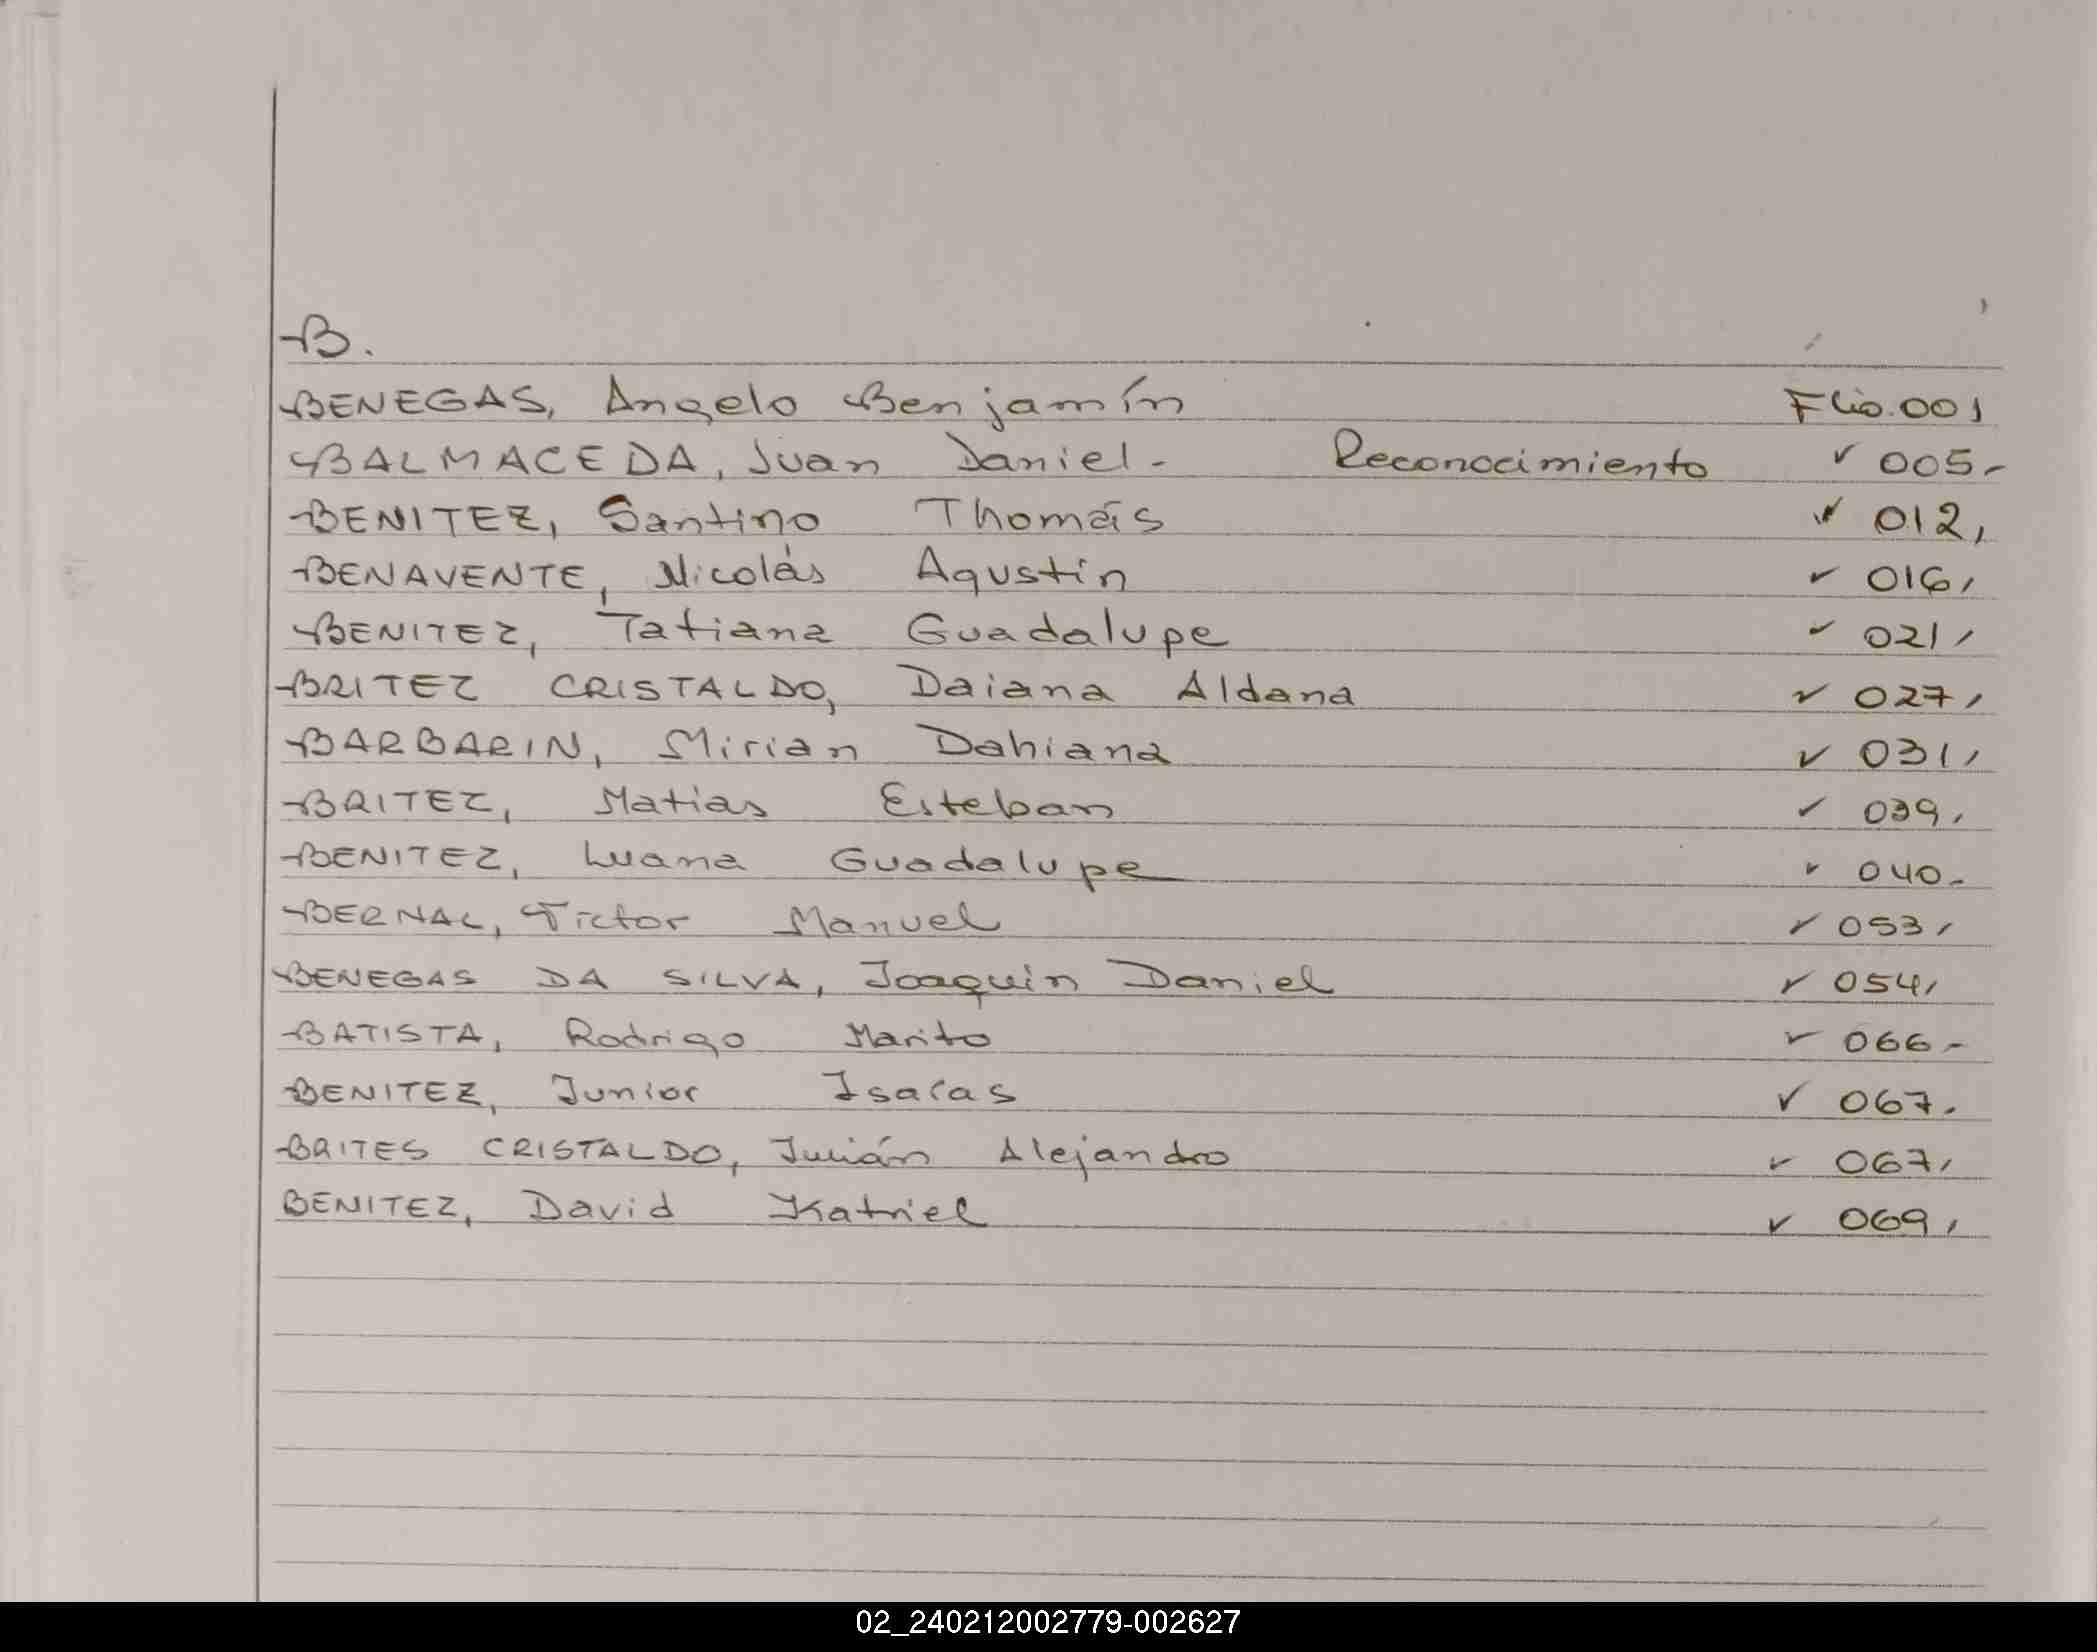 B.
BENEGAS, Angelo Benjamín Flio.001
BALMACEDA, Juan Daniel- Reconocimiento ✓ 005-
BENITEZ, Santino Thomás ✓ 012,
BENAVENTE, Nicolás Agustín ✓ 016,
BENITEZ, Tatiana Guadalupe ✓ 021,
BRITEZ CRISTALDO, Daiana Aldana ✓ 027,
BARBARIN, Mirian Dahiana ✓ 031,
BRITEZ, Matias Esteban ✓ 039,
BENITEZ, Luana Guadalupe ✓ 040-
BERNAL, Victor Manuel ✓ 053,
BENEGAS DA SILVA, Joaquin Daniel ✓ 054,
BATISTA, Rodrigo Marito ✓ 066-
BENITEZ, Junior Isaías ✓ 067.
BRITES CRISTALDO, Julián Alejandro ✓ 067,
BENITEZ, David Katriel ✓ 069,
02_240212002779-002627